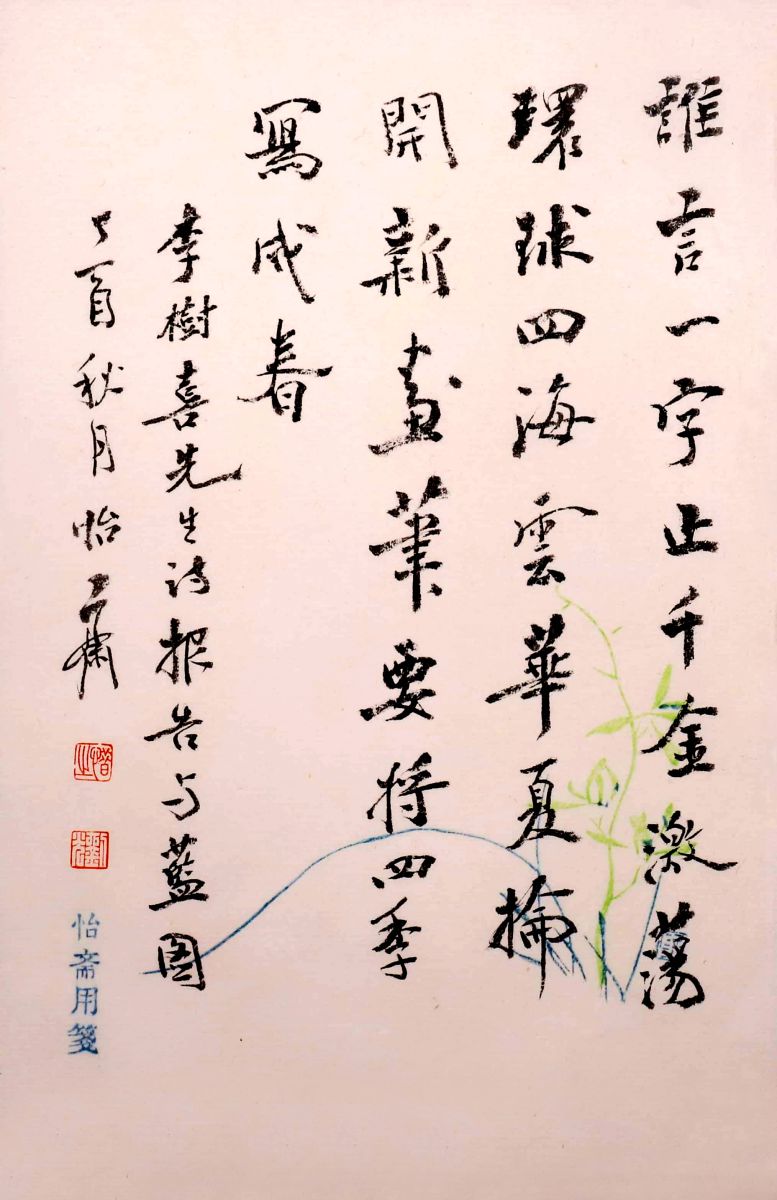 誰言一字止千金激荡
環球四海雲華夏掄
開新畫筆要将四季
寫成春
李樹喜先生诗报告与藍图
酉秋月怡齋
怡斋用箋